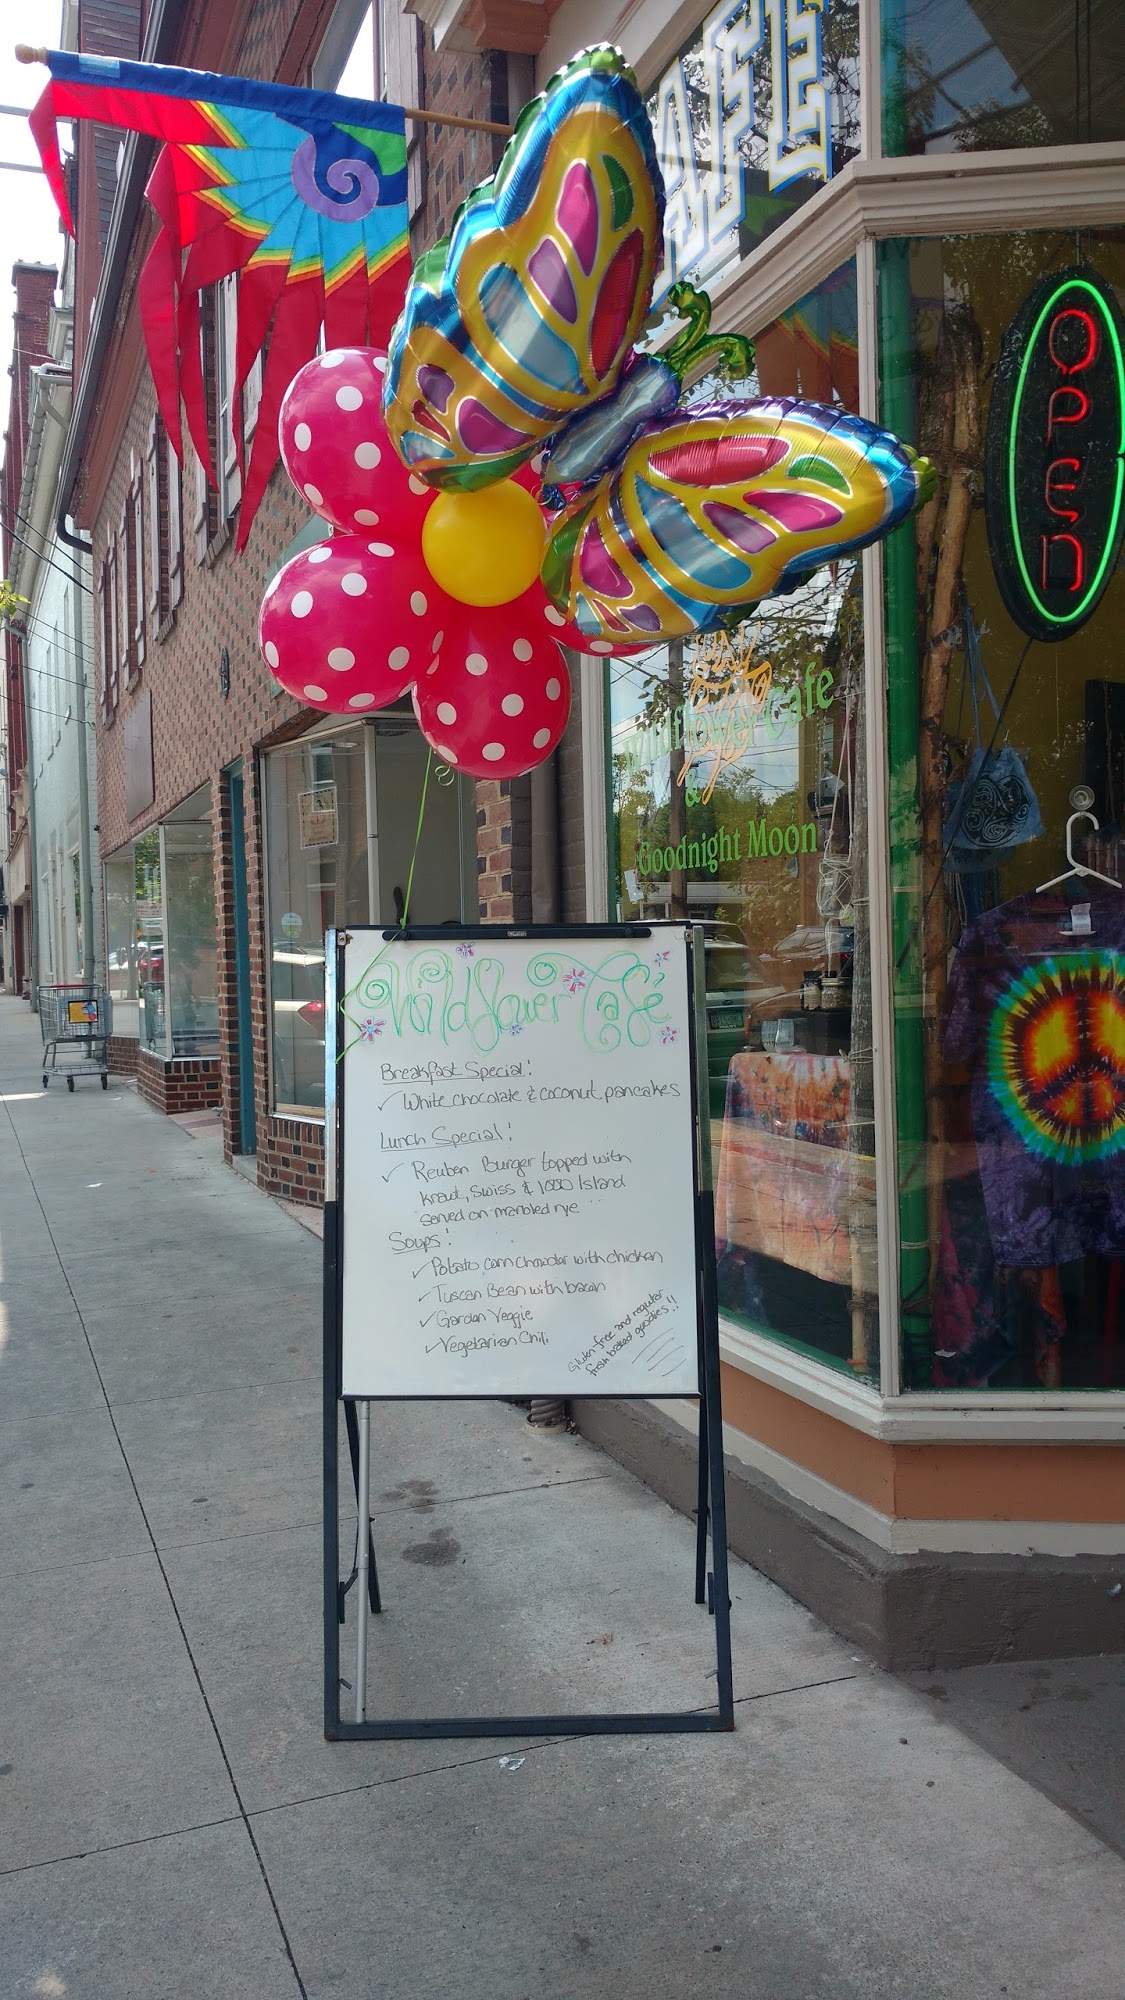 CAFE
OPEN
Wildflower Cafe
&
Goodnight Moon
Wildflower Café
Breakfast Special!
✓ White chocolate & coconut pancakes
Lunch Special!
✓ Reuben Burger topped with
kraut, Swiss & 1000 Island
served on marbled rye
Soups!
✓ Potato corn chowder with chicken
✓ Tuscan Bean with bacon
✓ Garden Veggie
✓ Vegetarian Chili
Gluten free and regular
fresh baked goodies!!